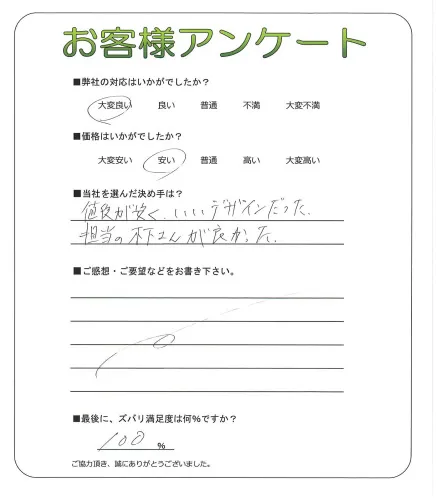 お客様アンケート
■弊社の対応はいかがでしたか?
大変良い 良い 普通 不満 大変不満
■価格はいかがでしたか?
大変安い 安い 普通 高い 大変高い
■当社を選んだ決め手は?
値段が安く、いいデザインだった.
担当の木下さんが良かった.
■ご感想・ご要望などをお書き下さい。
■最後に、ズバリ満足度は何%ですか?
100 %
ご協力頂き、誠にありがとうございました。